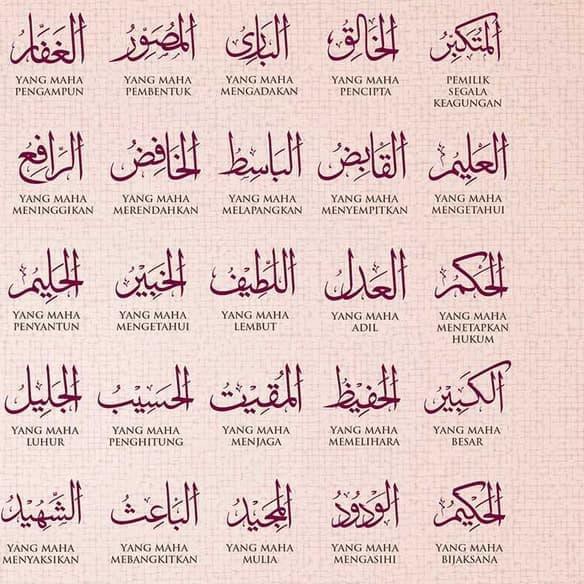 المتكبر
PEMILIK
SEGALA
KEAGUNGAN
الخالق
YANG MAHA
PENCIPTA
البارئ
YANG MAHA
MENGADAKAN
المصور
YANG MAHA
PEMBENTUK
الغفار
YANG MAHA
PENGAMPUN
العليم
YANG MAHA
MENGETAHUI
القابض
YANG MAHA
MENYEMPITKAN
الباسط
YANG MAHA
MELAPANGKAN
الخافض
YANG MAHA
MERENDAHKAN
الرافع
YANG MAHA
MENINGGIKAN
الحكم
YANG MAHA
MENETAPKAN
HUKUM
العدل
YANG MAHA
ADIL
اللطيف
YANG MAHA
LEMBUT
الخبير
YANG MAHA
MENGETAHUI
الحليم
YANG MAHA
PENYANTUN
الكبير
YANG MAHA
BESAR
الحفيظ
YANG MAHA
MEMELIHARA
المقيت
YANG MAHA
MENJAGA
الحسيب
YANG MAHA
PENGHITUNG
الجليل
YANG MAHA
LUHUR
الحكيم
YANG MAHA
BIJAKSANA
الودود
YANG MAHA
MENGASIHI
المجيد
YANG MAHA
MULIA
الباعث
YANG MAHA
MEBANGKITKAN
الشهيد
YANG MAHA
MENYAKSIKAN